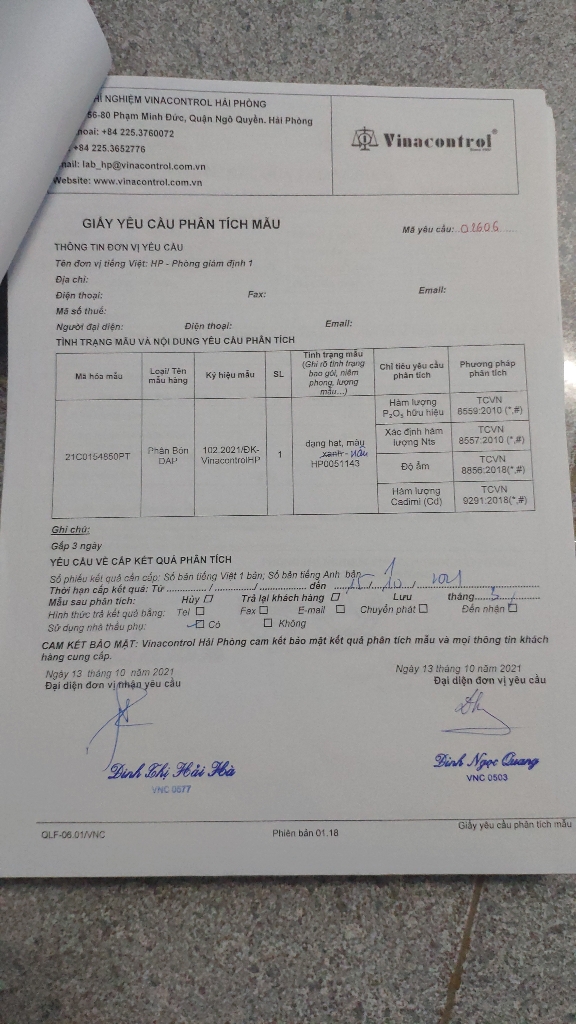 NGHIỆM VINACONTROL HẢI PHÒNG
56-80 Phạm Minh Đức, Quận Ngô Quyền. Hải Phòng
hoại: +84 225.3760072
+84 225.3652776
mail: lab_hp@vinacontrol.com.vn
Website: www.vinacontrol.com.vn
Vinacontrol®
GIẤY YÊU CẦU PHÂN TÍCH MẪU
Mã yêu cầu: 02606
THÔNG TIN ĐƠN VỊ YÊU CẦU
Tên đơn vị tiếng Việt: HP - Phòng giám định 1
Địa chỉ:
Điện thoại: Fax: Email:
Mã số thuế:
Người đại diện: Điện thoại: Email:
TÌNH TRẠNG MẪU VÀ NỘI DUNG YÊU CẦU PHÂN TÍCH
Mã hóa mẫu
Loại/ Tên mẫu hàng
Ký hiệu mẫu
SL
Tình trạng mẫu
(Ghi rõ tình trạng
bao gói, niêm
phong, lượng
mẫu...)
Chỉ tiêu yêu cầu
phân tích
Phương pháp
phân tích
21C0154850PT
Phân Bón
DAP
102.2021/ĐK-
VinacontrolHP
1
dạng hạt, màu
xanh - nâu
HP0051143
Hàm lượng
P₂O₅ hữu hiệu
TCVN
8559:2010 (*,#)
Xác định hàm
lượng Nts
TCVN
8557:2010 (*,#)
Độ ẩm
TCVN
8856:2018(*,#)
Hàm lượng
Cadimi (Cd)
TCVN
9291:2018(*,#)
Ghi chú:
Gấp 3 ngày
YÊU CẦU VỀ CẤP KẾT QUẢ PHÂN TÍCH
Số phiếu kết quả cần cấp: Số bản tiếng Việt 1 bản; Số bản tiếng Anh bản
Thời hạn cấp kết quả: Từ ....../....../...... đến 15, 10, 2021
Mẫu sau phân tích: Hủy Trả lại khách hàng Lưu 3 tháng
Hình thức trả kết quả bằng: Tel Fax E-mail Chuyển phát Đến nhận
Sử dụng nhà thầu phụ: Có Không
CAM KẾT BẢO MẬT: Vinacontrol Hải Phòng cam kết bảo mật kết quả phân tích mẫu và mọi thông tin khách
hàng cung cấp.
Ngày 13 tháng 10 năm 2021
Đại diện đơn vị nhận yêu cầu
Đinh Thị Hải Hà
VNC 0677
Ngày 13 tháng 10 năm 2021
Đại diện đơn vị yêu cầu
Đinh Ngọc Quang
VNC 0503
QLF-06.01/VNC Phiên bản 01.18 Giấy yêu cầu phân tích mẫu